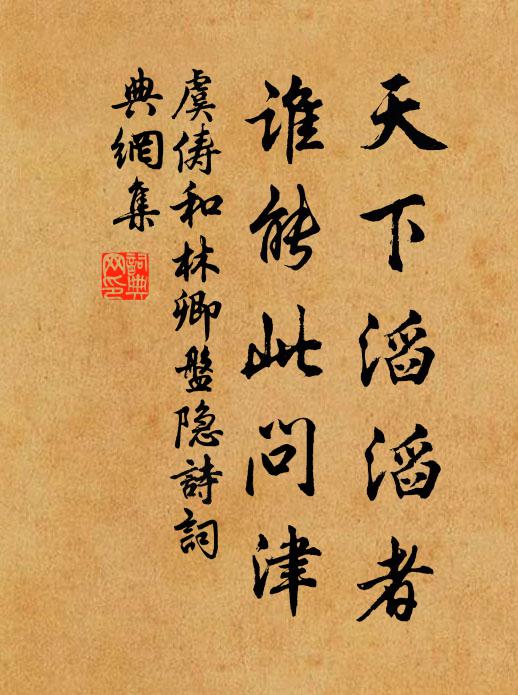 天下滔滔者
誰能此問津
虞儔和林卿盤隐詩詞
典網集
詞典網印